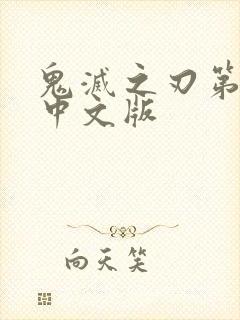 鬼滅之刃第
中文版
向天笑